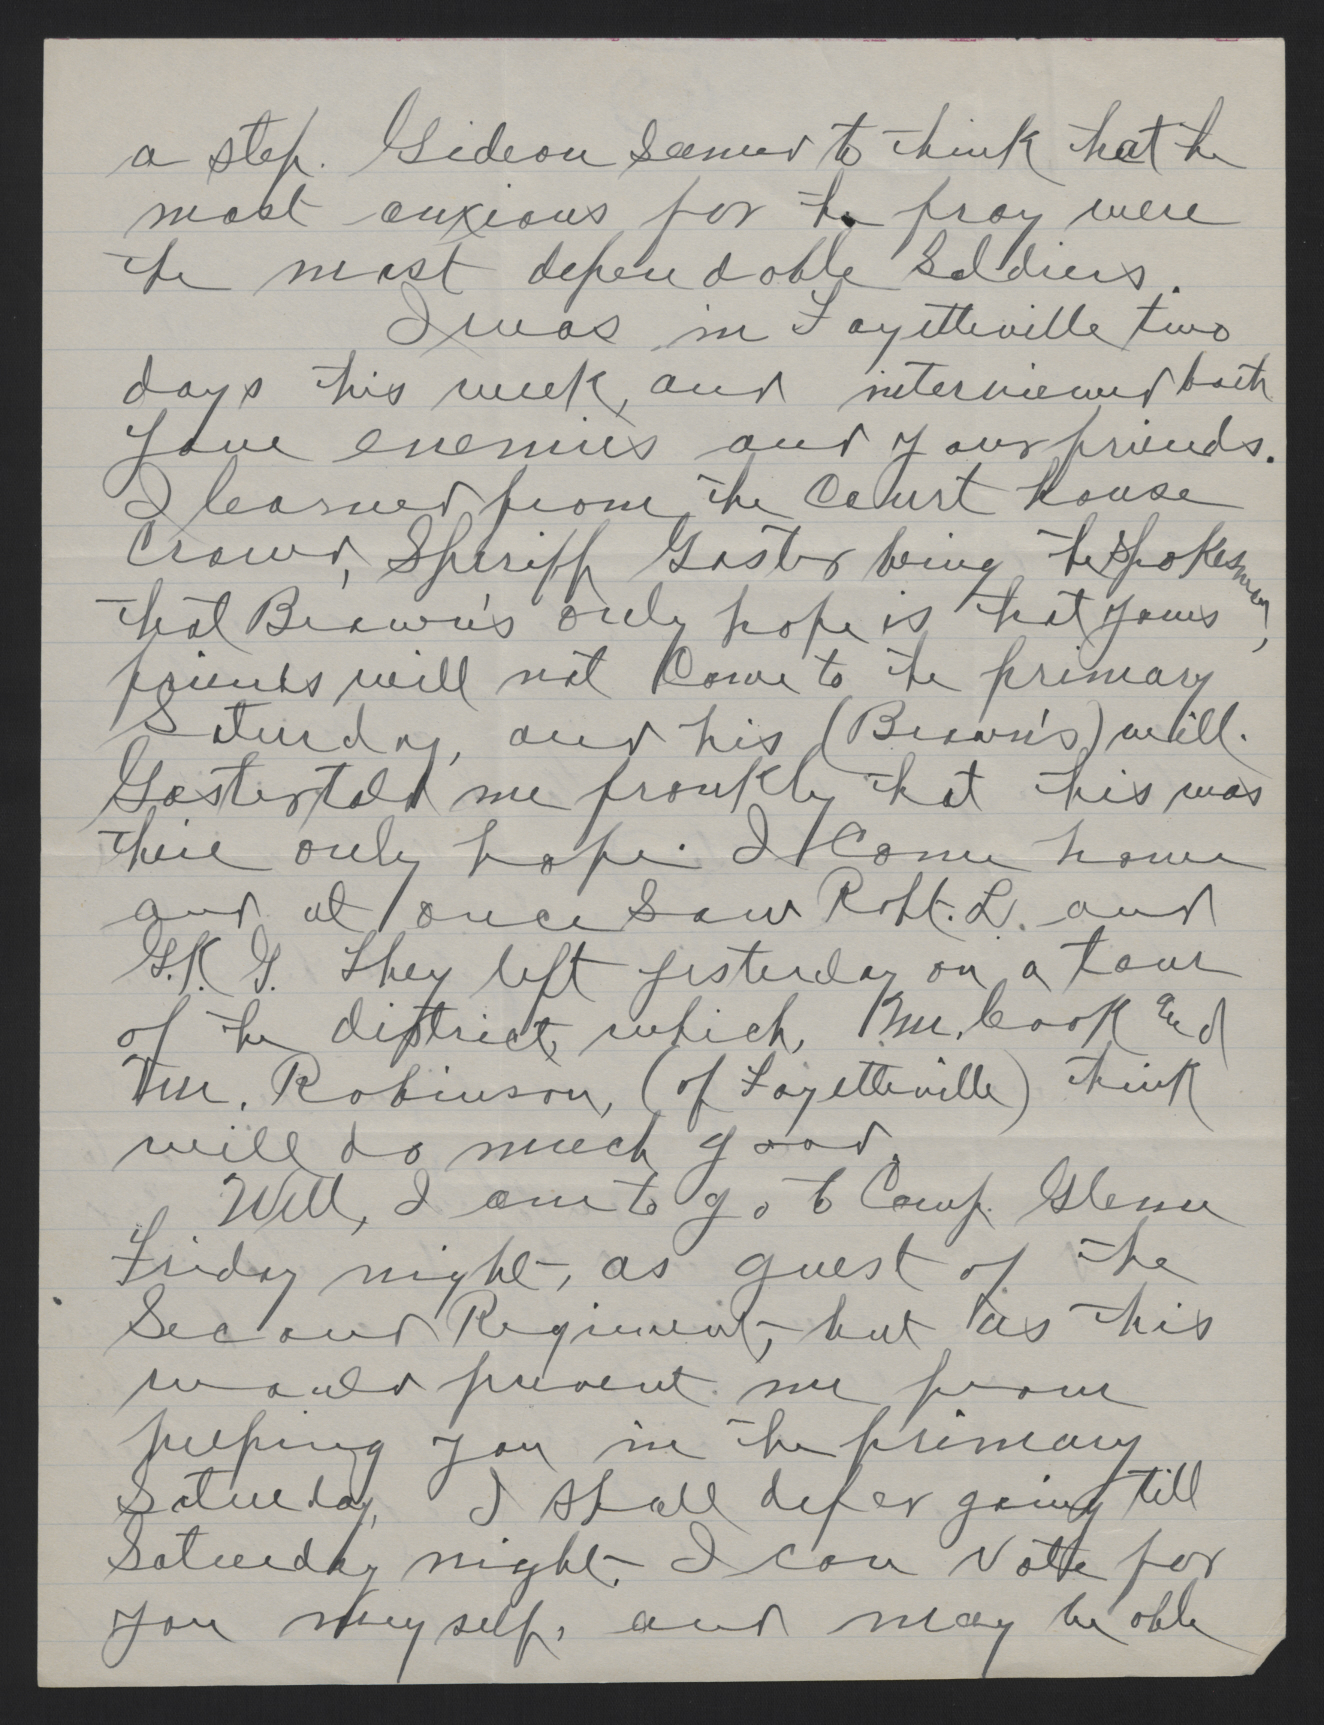 a step. Gideon seemed to think that the
most anxious for the fray were
the most dependable soldiers.
I was in Fayetteville two
days this week, and interviewed both
your enemies and your friends.
I learned from the Court house
crowd, Sheriff Gaster being the spokesman,
that Brown's only hope is that your
friends will not come to the primary
Saturday, and his (Brown's) will.
Gaster told me frankly that this was
their only hope. I came home
and at once saw Robt. L. and
G.K.G. They left yesterday on a tour
of the district, which, Mr. Cook and
Mr. Robinson, (of Fayetteville) think
will do much good.
Well, I am to go to Camp Glenn
Friday night, as guest of the
Second Regiment, but as this
would prevent me from
helping you in the primary
Saturday, I shall defer going till
Saturday night. I can vote for
you myself, and may be able